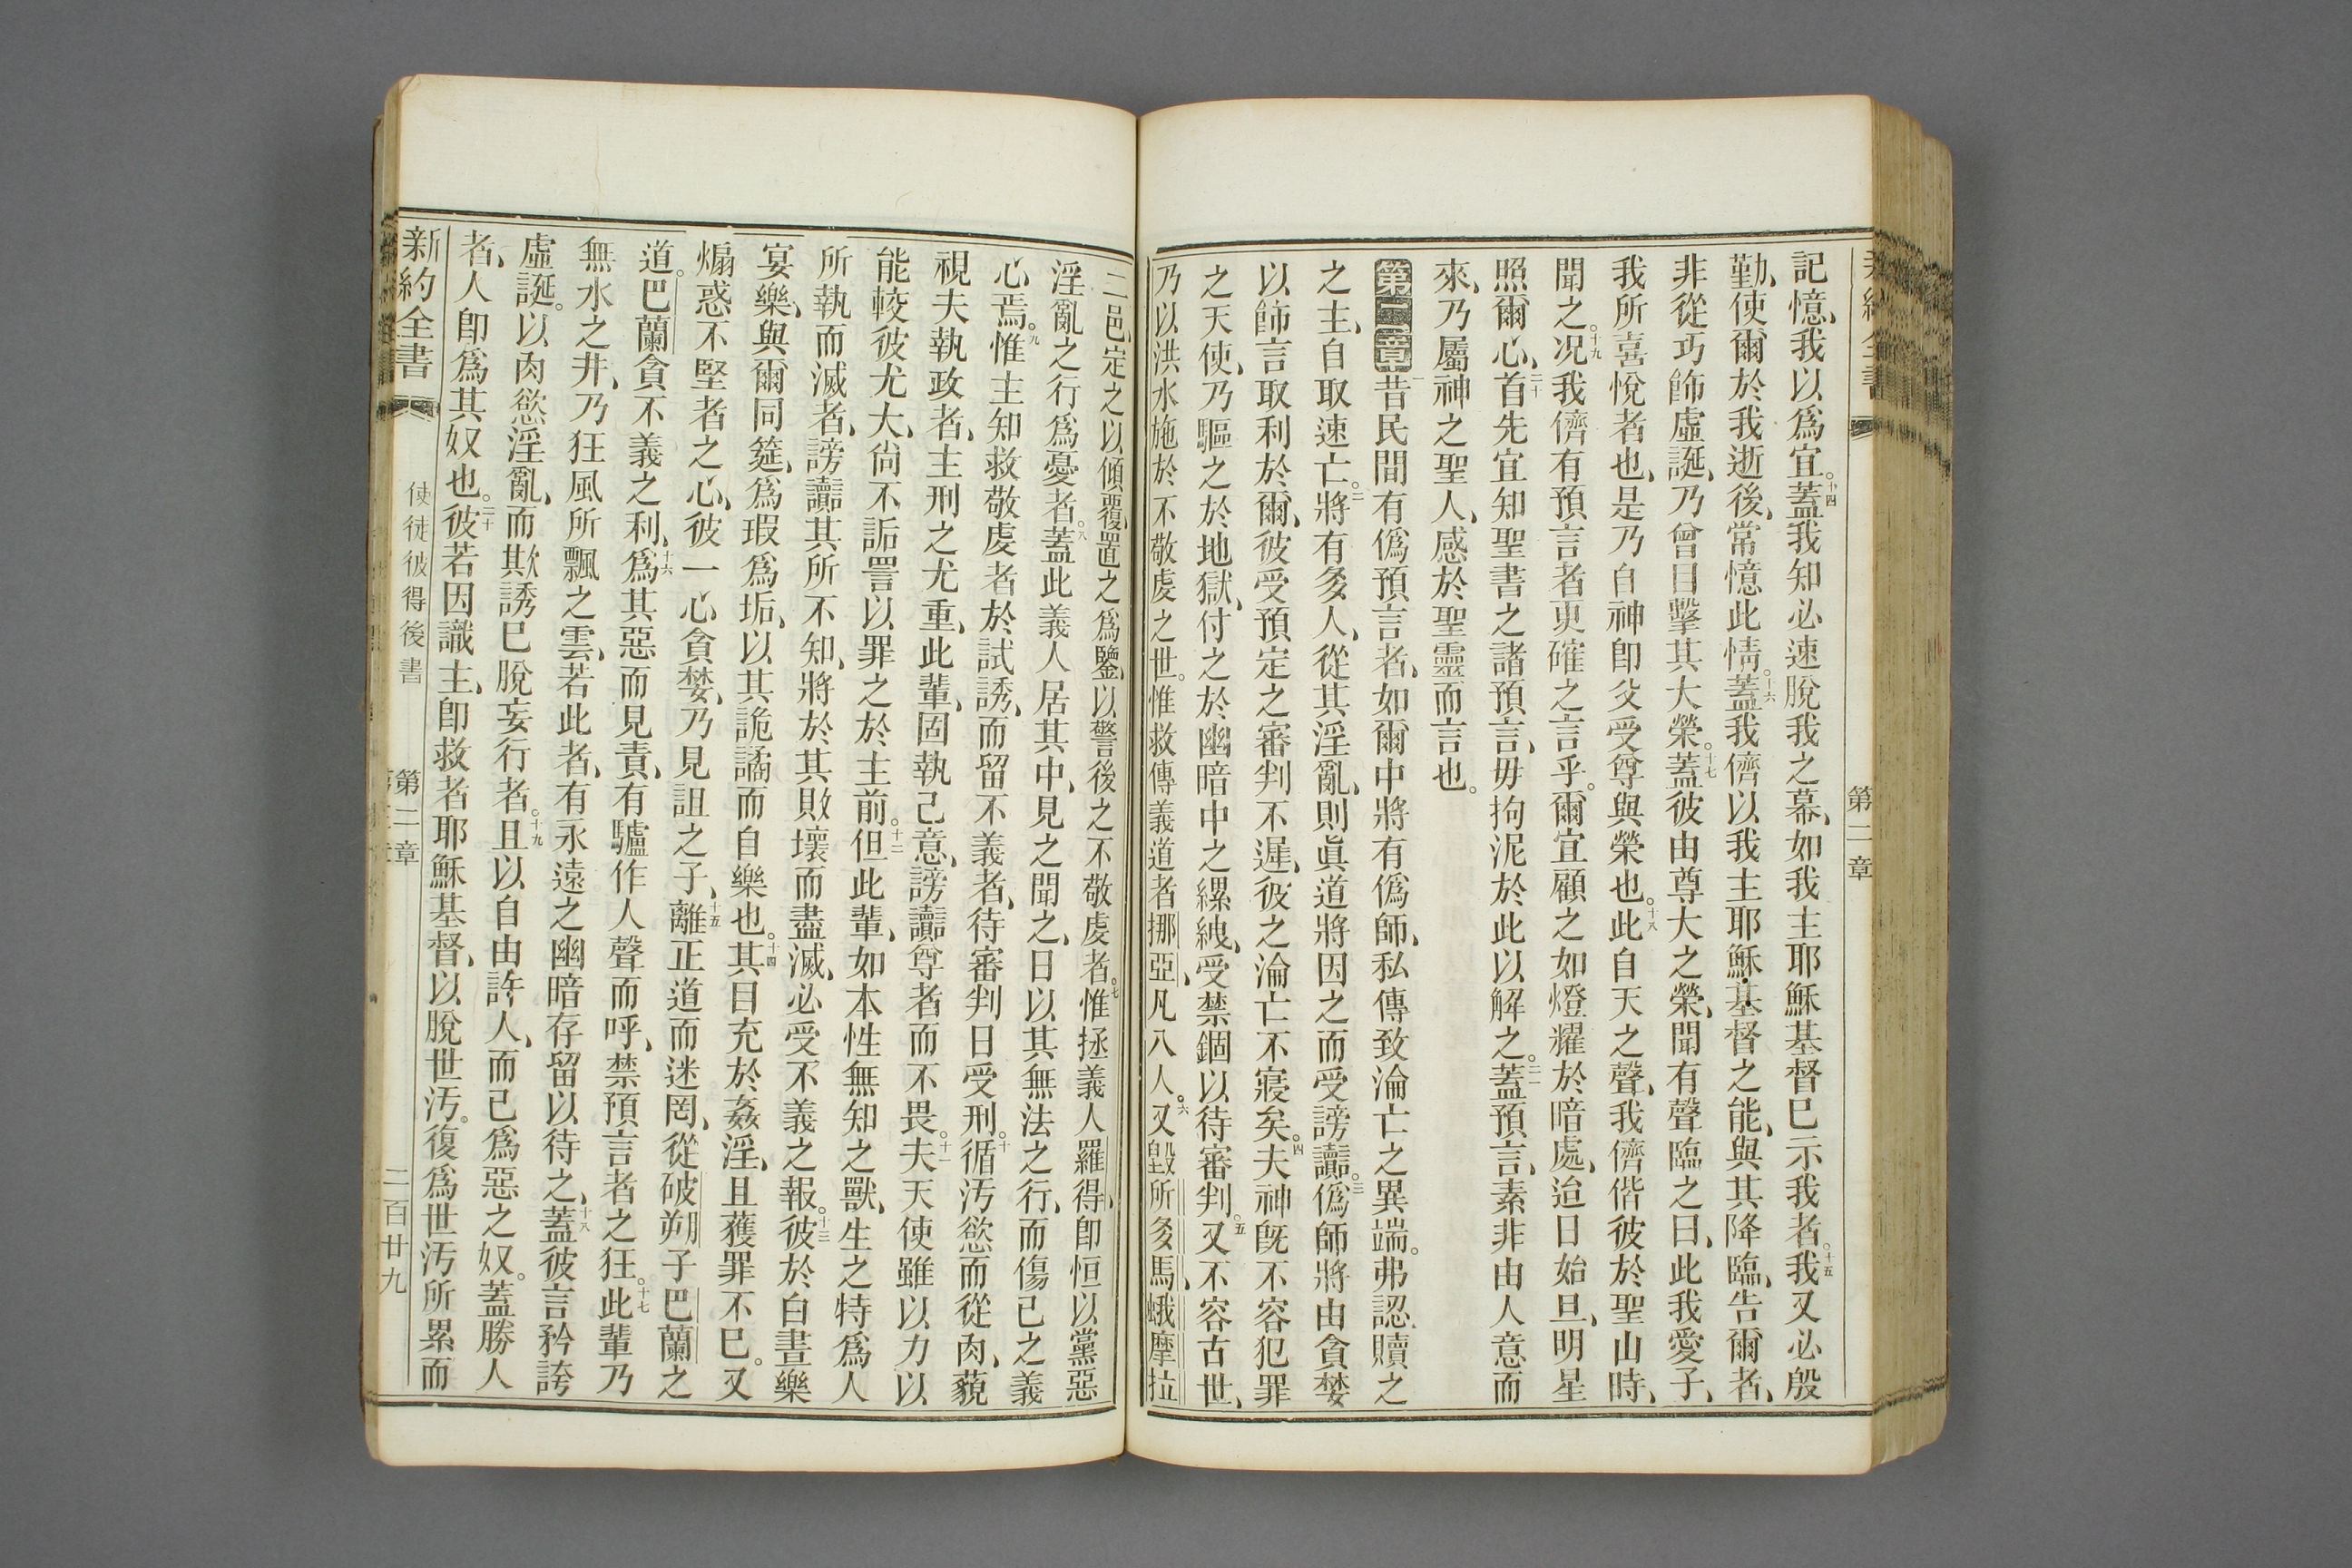 記憶、我以爲宜。十四蓋我知必速脫我之幕、如我主耶穌基督已示我者。十五我又必殷
勤、使爾於我逝後、常憶此情。十六蓋我儕以我主耶穌基督之能、與其降臨、告爾者、
非從巧飾虛誕、乃曾目擊其大榮。十七蓋彼由尊大之榮、聞有聲臨之曰、此我愛子、
我所喜悅者也、是乃自神卽父受尊與榮也。十八此自天之聲、我儕偕彼於聖山時、
聞之。十九况我儕有預言者更確之言乎。爾宜顧之如燈耀於暗處、迨日始旦、明星
照爾心、二十首先宜知聖書之諸預言、毋拘泥於此以解之。二一蓋預言、素非由人意而
來、乃屬神之聖人、感於聖靈而言也。
第二章一昔民間有僞預言者、如爾中將有僞師、私傳致淪亡之異端。弗認贖之
之主、自取速亡。二將有多人、從其淫亂、則眞道將因之而受謗讟。三僞師將由貪婪
以飾言取利於爾、彼受預定之審判不遲、彼之淪亡不寢矣。四夫神旣不容犯罪
之天使、乃驅之於地獄、付之於幽暗中之縲絏、受禁錮以待審判。五又不容古世、
乃以洪水施於不敬虔之世。惟救傳義道者挪亞、凡八人。六又毀所多馬、蛾摩拉
二邑、定之以傾覆、置之爲鑒、以警後之不敬虔者。七惟拯義人羅得、卽恒以黨惡
淫亂之行爲憂者。八蓋此義人居其中、見之聞之、日以其無法之行、而傷己之義
心焉。九惟主知救敬虔者於試誘、而留不義者、待審判日受刑。十循汚慾而從肉、藐
視夫執政者、主刑之尤重、此輩、固執己意、謗讟尊者而不畏。十一夫天使雖以力以
能較彼尤大、尙不詬詈以罪之於主前。十二但此輩、如本性無知之獸、生之特爲人
所執而滅者、謗讟其所不知、將於其敗壞而盡滅、必受不義之報。十三彼於白晝樂
宴樂、與爾同筵、爲瑕爲垢、以其詭譎而自樂也。十四其目充於姦淫、且獲罪不已。又
煽惑不堅者之心、彼一心貪婪、乃見詛之子、十五離正道而迷罔、從破朔子巴蘭之
道。巴蘭貪不義之利、十六爲其惡而見責、有驢作人聲而呼、禁預言者之狂。十七此輩乃
無水之井、乃狂風所飄之雲、若此者、有永遠之幽暗存留以待之、十八蓋彼言矜誇
虛誕。以肉慾淫亂、而欺誘已脫妄行者。十九且以自由許人、而己爲惡之奴。蓋勝人
者、人卽爲其奴也。二十彼若因識主、卽救者耶穌基督、以脫世汚。復爲世汚所累而
新約全書 使徒彼得後書 第二章 二百廿九
第二章